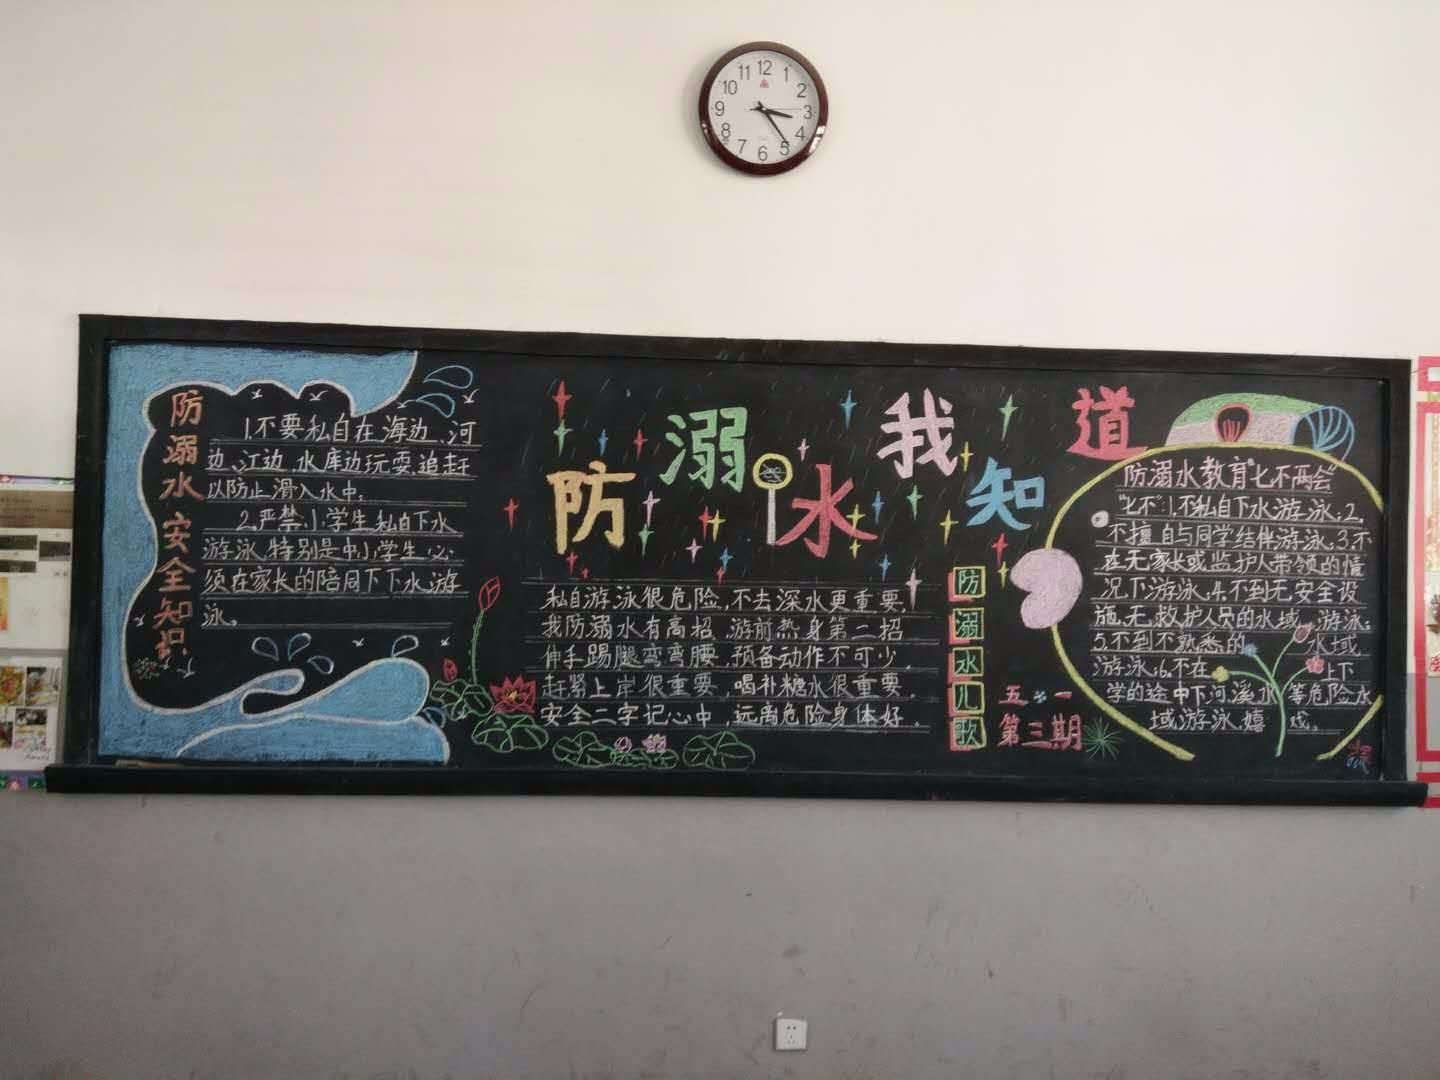 12
1
2
3
4
5
6
7
8
9
10
11
防溺水我知道
防溺水安全知识
1.不要私自在海边、河
边、江边、水库边玩耍、追赶
以防止滑入水中。
2.严禁小学生私自下水
游泳,特别是中小学生,必
须在家长的陪同下下水游
泳。
私自游泳很危险,不去深水更重要,
我防溺水有高招,游前热身第二招
伸手踢腿弯弯腰,预备动作不可少,
赶紧上岸很重要,喝补糖水很重要,
安全二字记心中,远离危险身体好。
防溺水儿歌
五一
第三期
防溺水教育"七不两会"
"七不":1.不私自下水游泳;2.
不擅自与同学结伴游泳;3.不
在无家长或监护人带领的情
况下游泳;4.不到无安全设
施、无救护人员的水域游泳;
5.不到不熟悉的水域
游泳;6.不在上下
学的途中下河溪水等危险水
域游泳、嬉戏。